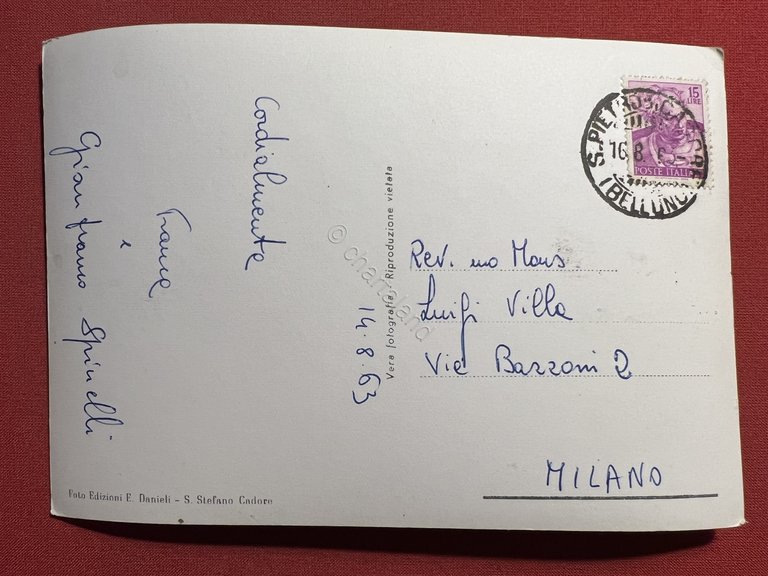 14.8.63
Cordialmente
Franca
e
Gianfranco Spinelli
Vera fotografia - Riproduzione vietata
Foto Edizioni E. Danieli - S. Stefano Cadore
15
LIRE
POSTE ITALIANE
S. PIETRO
16.8
(BELLUNO)
Rev. mo Mons
Luigi Villa
Via Bazzoni 2
MILANO
© chartaland